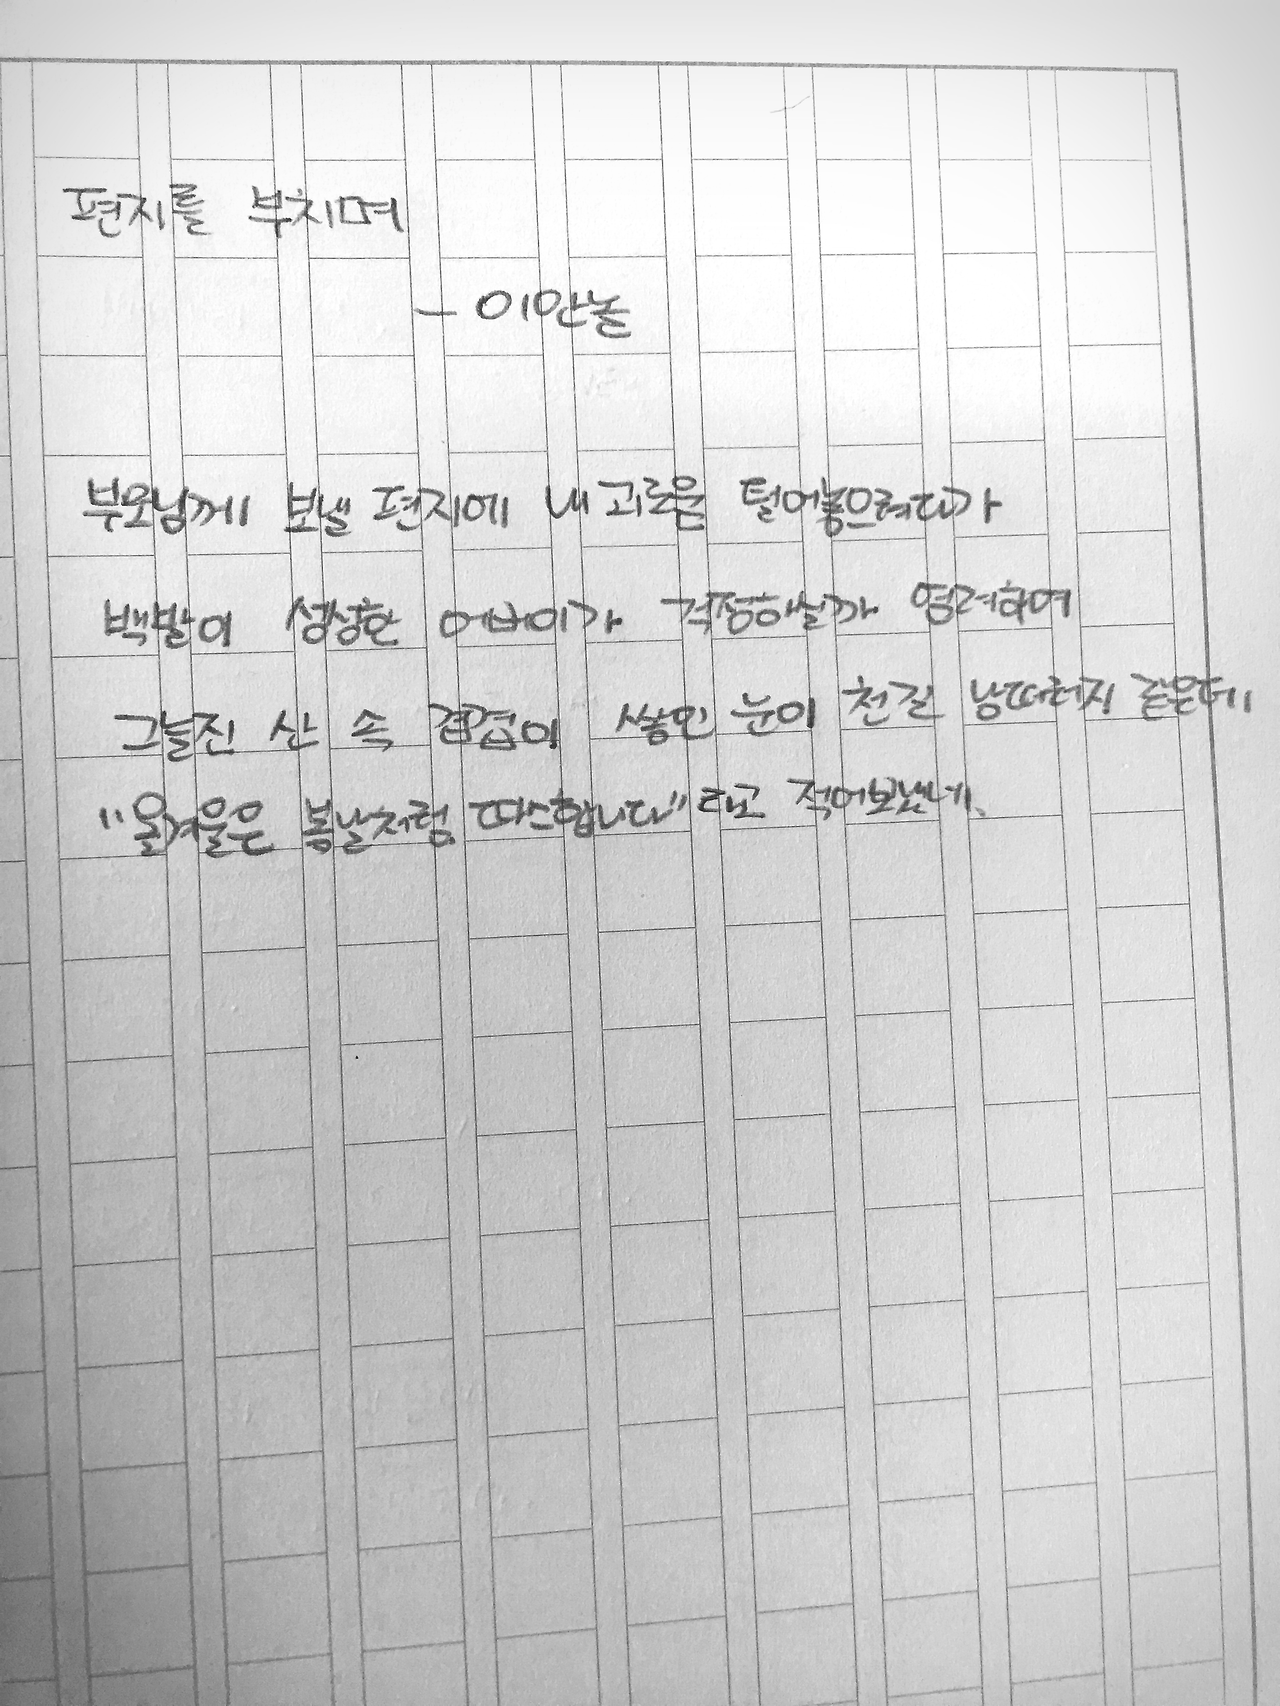 편지를 부치며
- 이안눌
부모님께 보낼 편지에 내 괴로움 털어놓으려다가
백발이 성성한 어버이가 걱정하실까 염려하여
그늘진 산 속 겹겹이 쌓인 눈이 천길 낭떠러지 같은데
"올겨울은 봄날처럼 따스합니다"라고 적어보냈네.